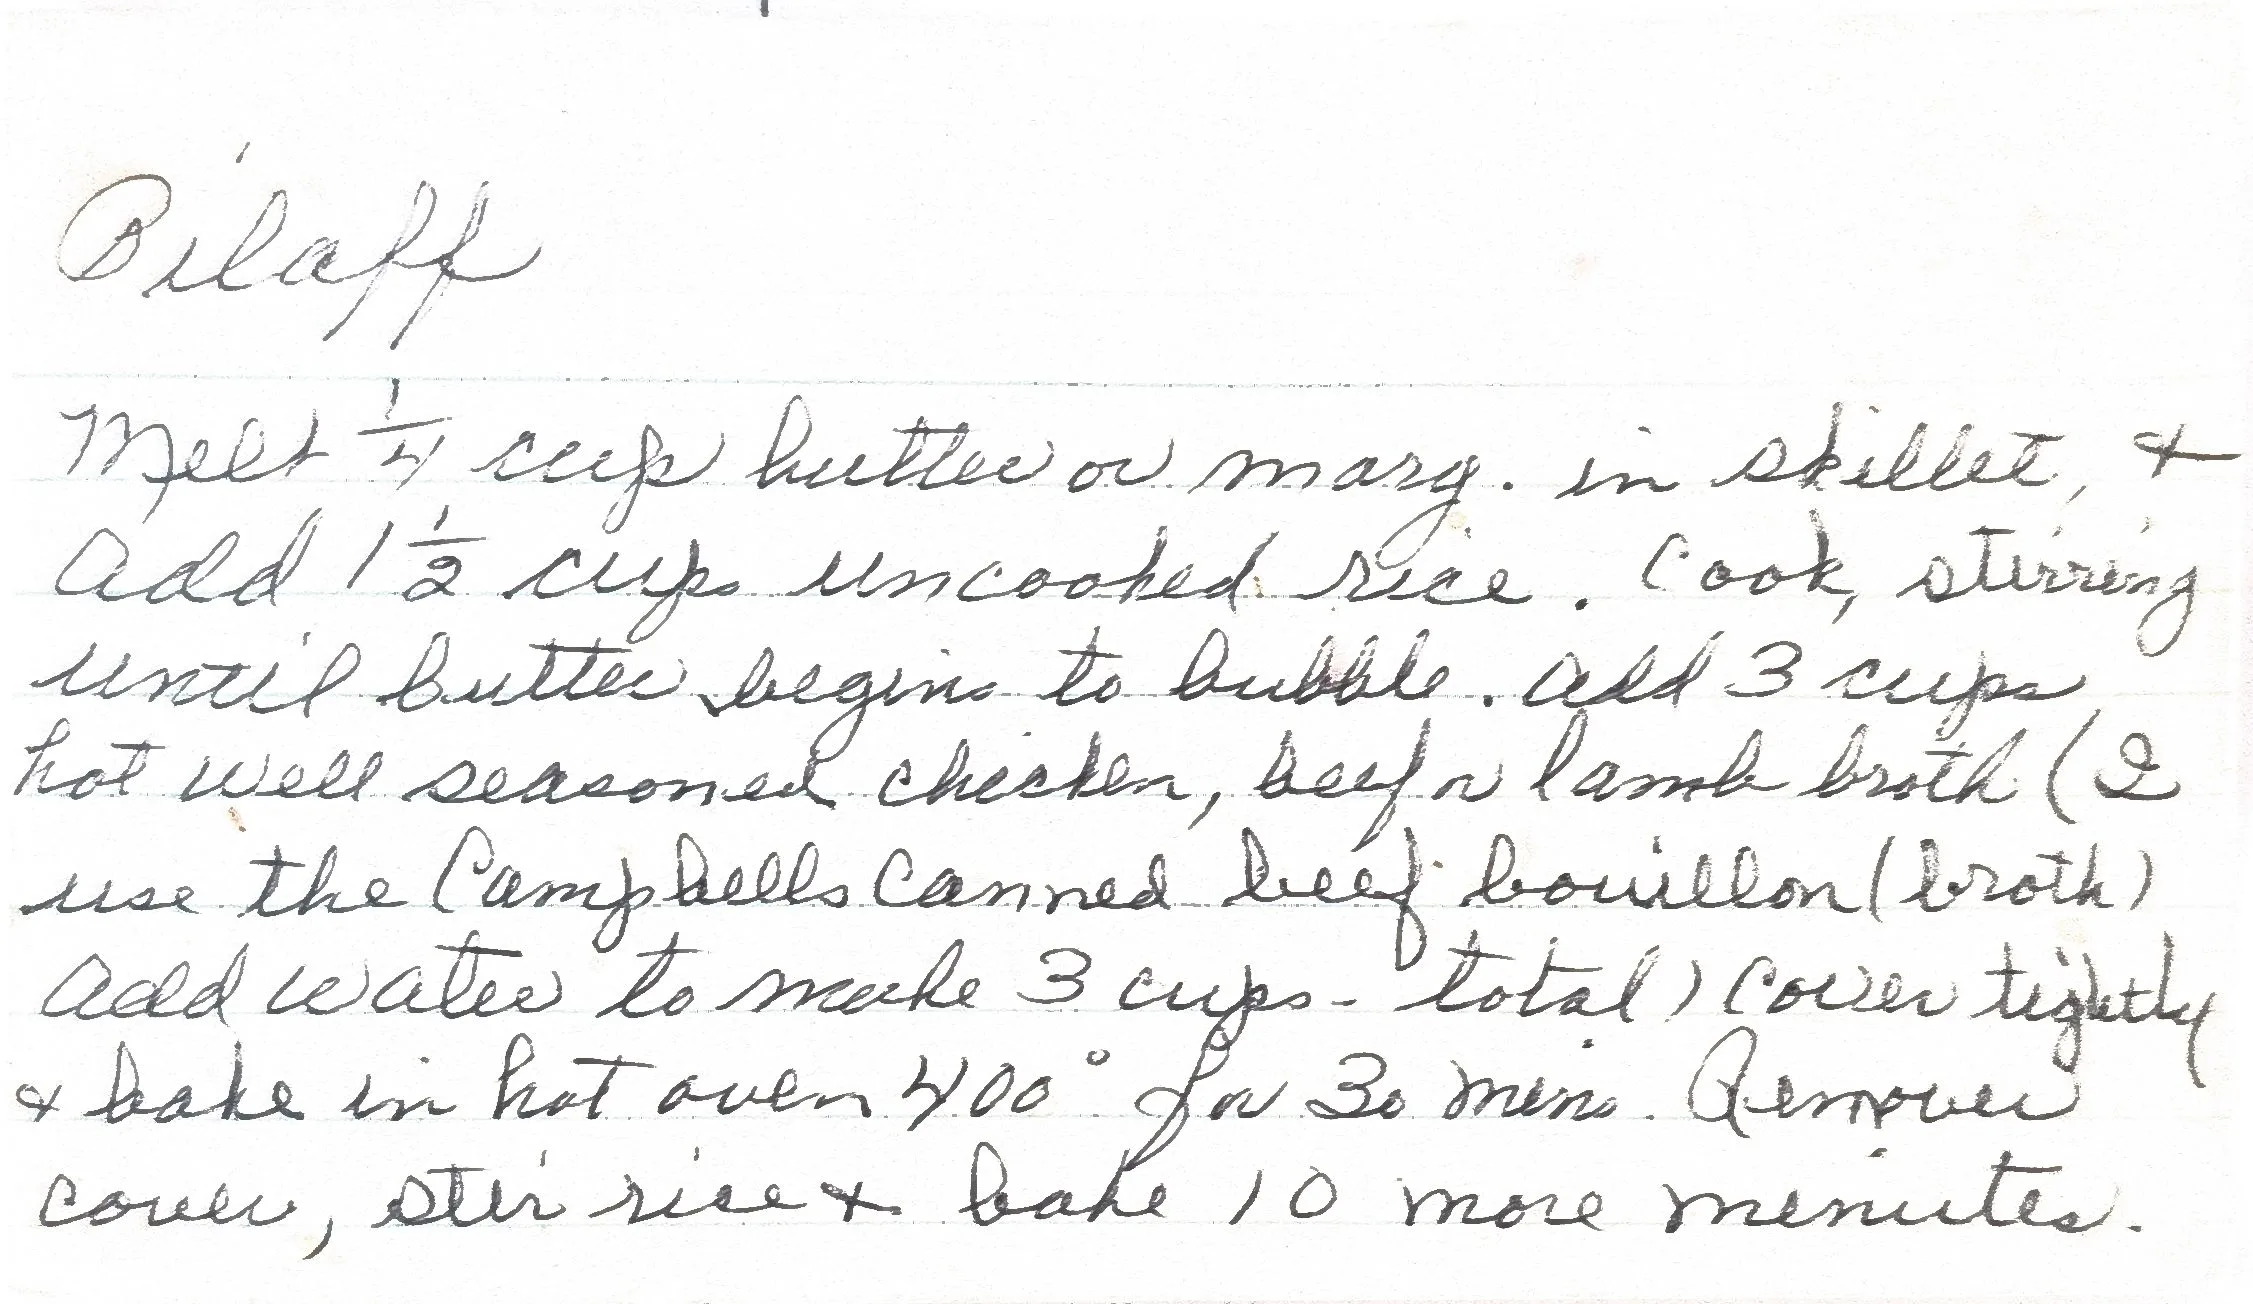 Pilaff
Melt 1/4 cup butter or marg. in skillet, &
add 1 1/2 cups uncooked rice. Cook, stirring
until butter begins to bubble. Add 3 cups
hot well seasoned chicken, beef or lamb broth (I
use the Campbells Canned beef bouillon (broth)
Add water to make 3 cups - total) Cover tightly
& bake in hot oven 400° for 30 mins. Remover
cover, stir rice & bake 10 more minutes.